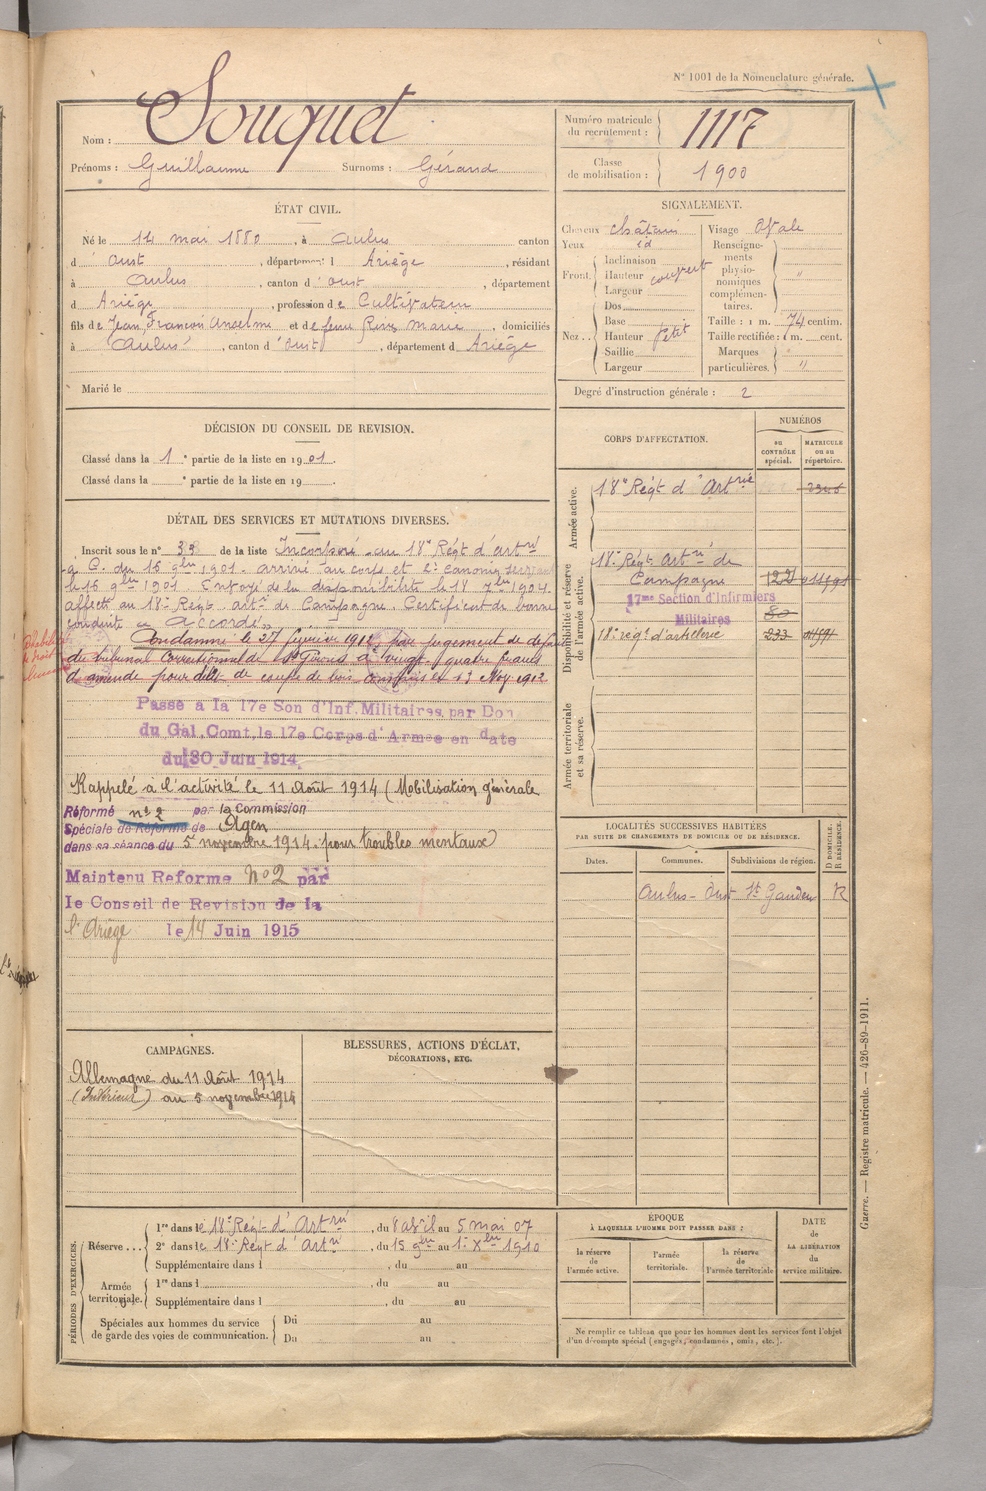 N° 1001 de la Nomenclature générale.
Nom : Souquet
Prénoms : Guillaume Surnoms : Gérand
Numéro matricule du recrutement : 1117
Classe de mobilisation : 1900
ÉTAT CIVIL.
Né le 14 mai 1880, à Aulus canton
d'Oust, département l Ariège, résidant
à Aulus, canton d'Oust, département
d Ariège, profession de Cultivateur
fils de Jean François Anselme et de feue Marie, domiciliés
à Aulus, canton d'Oust, département d Ariège
Marié le
SIGNALEMENT.
Cheveux châtain
Yeux id
Front. Inclinaison
Hauteur couvert
Largeur
Nez.. Dos
Base
Hauteur petit
Saillie
Largeur
Visage Ovale
Renseignements physionomiques complémentaires. "
Taille : 1 m. 74 centim.
Taille rectifiée : 1 m. cent.
Marques particulières. "
Degré d'instruction générale : 2
DÉCISION DU CONSEIL DE REVISION.
Classé dans la 1e partie de la liste en 1901.
Classé dans la e partie de la liste en 19
DÉTAIL DES SERVICES ET MUTATIONS DIVERSES.
Inscrit sous le n° 33 de la liste Incorporé au 18e Régt d'artrie
à C. du 15 9bre 1901. arrivé au corps et 2e canonnier servant
le 16 9bre 1901. Envoyé dans la disponibilité le 18 7bre 1904.
affecté au 18e Régt artrie de Campagne. Certificat de bonne
conduite "accordé".
Condamné le 27 février 1912 par jugement de défaut
du tribunal Correctionnel de St Girons à vingt-quatre francs
d'amende pour délit de coupe de bois commis le 13 Nov. 1912
Passé à la 17e Son d'Inf. Militaires, par Don
du Gal. Comt. le 17e Corps d'Armée en date
du 30 Juin 1914
Rappelé à l'activité le 11 Août 1914 (Mobilisation générale
Réformé n° 2 par la Commission
Spéciale de Réforme de Agen
dans sa séance du 5 novembre 1914. pour troubles mentaux)
Maintenu Reforme No 2 par
le Conseil de Revision de la
l'Ariège le 14 Juin 1915
CORPS D'AFFECTATION.
NUMÉROS
au CONTRÔLE spécial.
MATRICULE ou au répertoire.
Armée active.
18e Régt d'Artrie
Disponibilité et réserve de l'armée active.
18e Régt Artrie de Campagne 122
17me Section d'Infirmiers Militaires 80
18e régt d'artillerie 233
Armée territoriale et sa réserve.
LOCALITÉS SUCCESSIVES HABITÉES
PAR SUITE DE CHANGEMENTS DE DOMICILE OU DE RÉSIDENCE.
Dates. Communes. Subdivisions de région. D DOMICILE. R RÉSIDENCE.
Aulus - Oust St Gaudens R
CAMPAGNES.
Allemagne du 11 Août 1914
(Intérieur) au 5 novembre 1914
BLESSURES, ACTIONS D'ÉCLAT,
DÉCORATIONS, ETC.
PÉRIODES D'EXERCICES.
Réserve... 1re dans le 18e Régt d'Artrie, du 8 avril au 5 mai 07
2e dans le 18e Régt d'Artrie, du 15 9bre au 1er Xbre 1910
Supplémentaire dans l , du au
Armée territoriale. 1re dans l , du au
Supplémentaire dans l , du au
Spéciales aux hommes du service de garde des voies de communication. Du au
Du au
ÉPOQUE
À LAQUELLE L'HOMME DOIT PASSER DANS :
la réserve de l'armée active.
l'armée territoriale.
la réserve de l'armée territoriale
DATE de LA LIBÉRATION du service militaire.
Ne remplir ce tableau que pour les hommes dont les services font l'objet
d'un décompte spécial (engagés, condamnés, omis, etc.).
Guerre. — Registre matricule. — 426-89-1911.